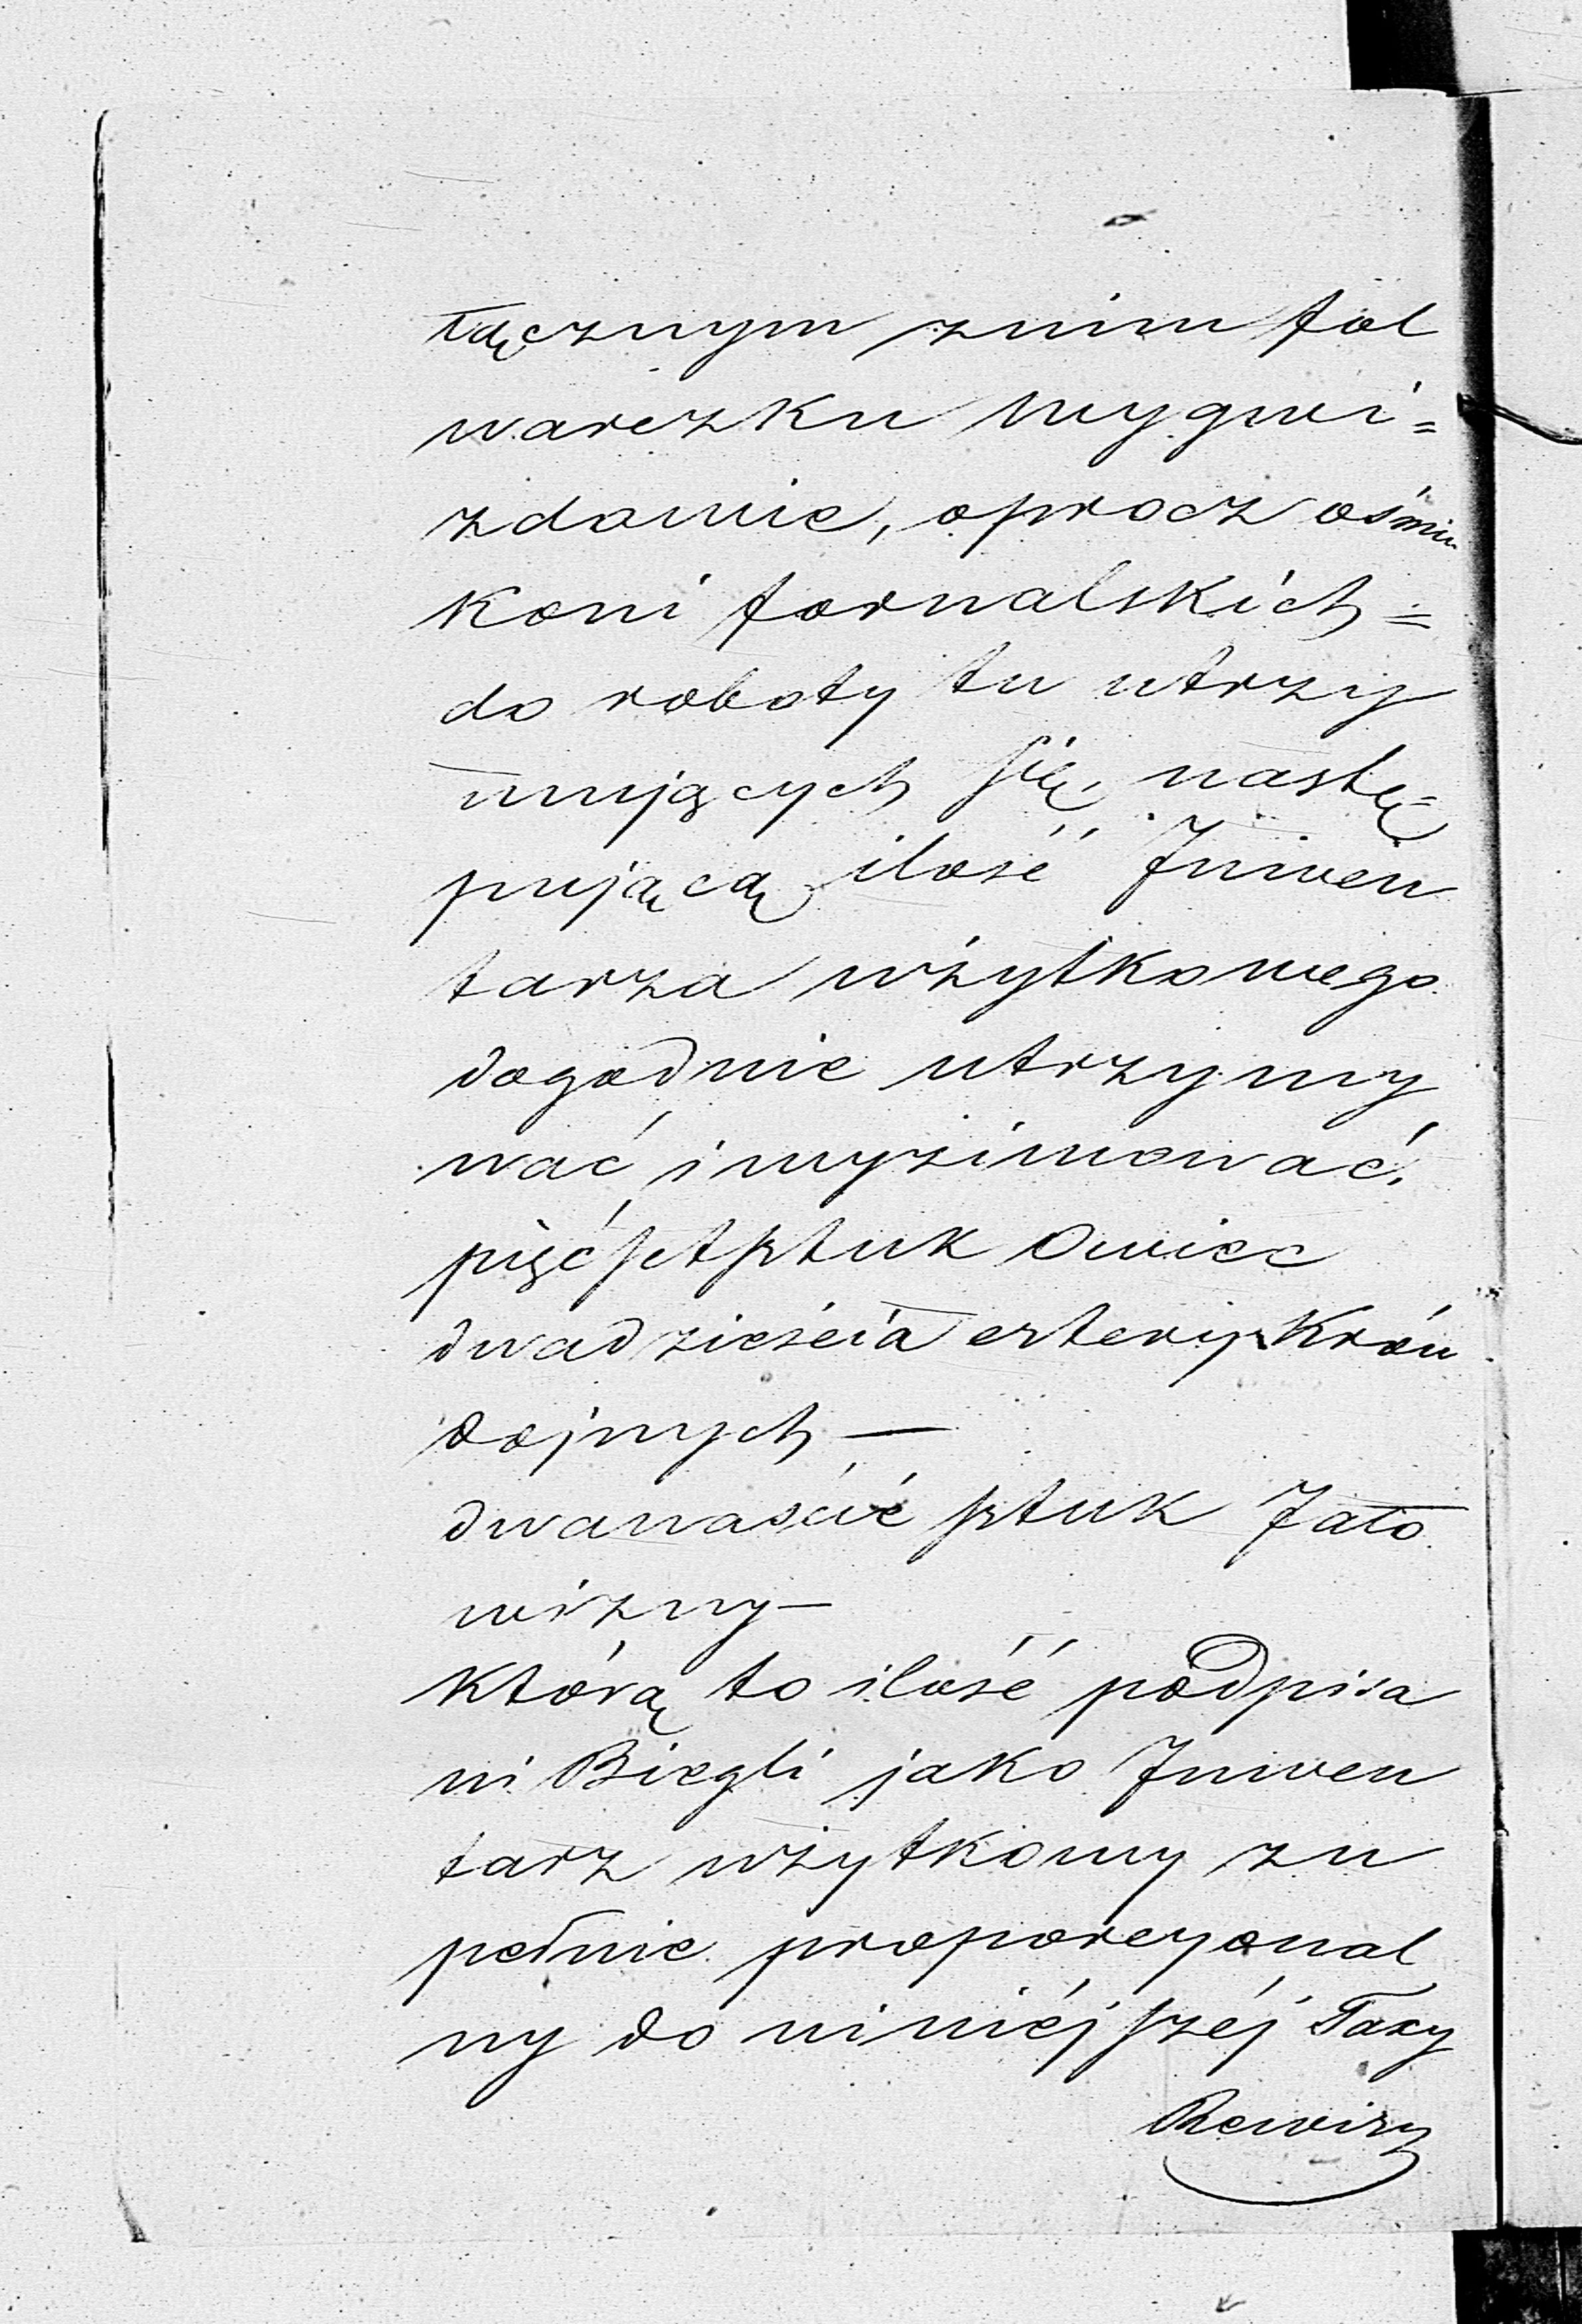 łącznym znim fol
warczku Wygwi=
zdowie, oprocz ośmiu
koni fornalskich =
do roboty tu utrzy
mujących się, nastę=
pującą ilość Inwen
tarza użytkowego
dogodnie utrzymy
wać i wyzimować.
pięćset sztuk Owiec
dwadzieścia cztery Krów
dojnych —
dwanaście sztuk Jało
wizny —
którą to ilość podpisa
ni Biegli jako Inwen
tarz użytkowy zu
pełnie proporcyonal
ny do niniéjszéj Taxy
Rewizy